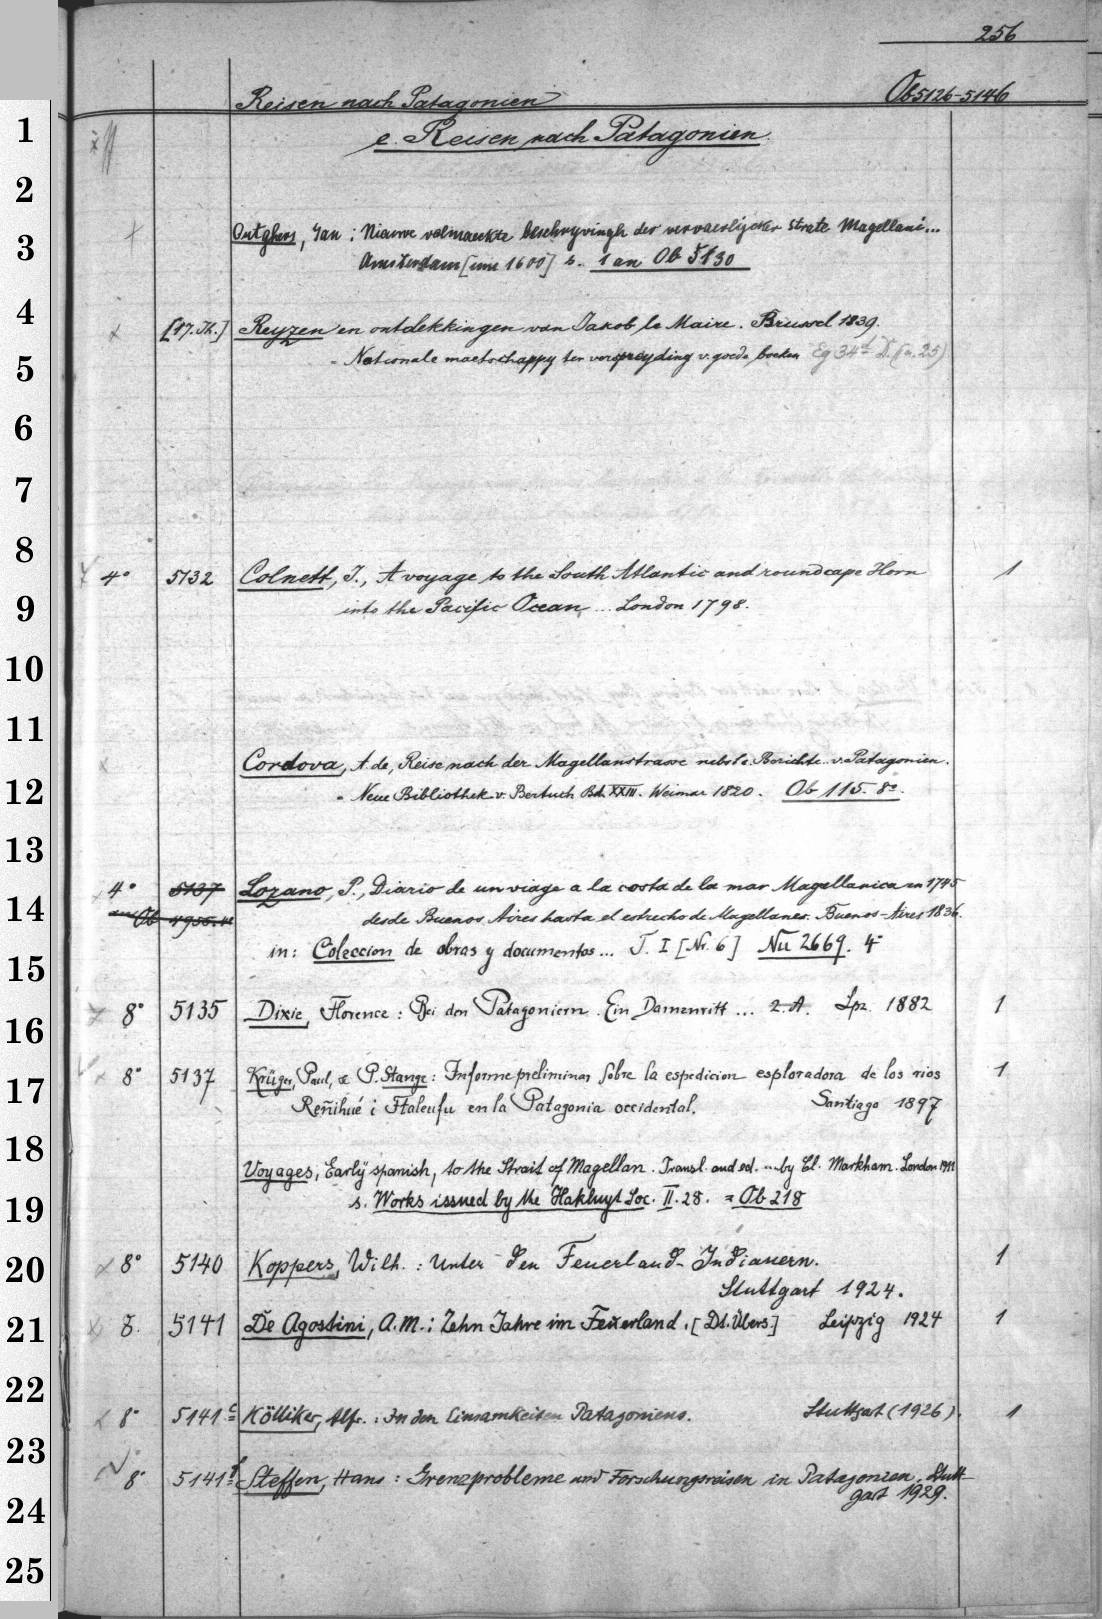 256
Reisen nach Patagonien Ob 5126-5146
1
e. Reisen nach Patagonien.
2
3
Outghers, Jan : Nieuwe volmaeckte beschryvingh der vervaerlijcker Strate Magellani...
Amsterdam [um 1600] s. 1 an Ob 5130
4
[17. Jh.] Reyzen en ontdekkingen van Jakob le Maire. Brussel 1839.
5
- Nationale maetschappy ter verspreyding v. goede boeken Eg 34 D. (n. 25)
6
7
8
4° 5132 Colnett, J., A voyage to the South Atlantic and round cape Horn 1
9
into the Pacific Ocean, ... London 1798.
10
11
Cordova, A. de, Reise nach der Magellanstrasse nebst e. Berichte v. Patagonien.
12
= Neue Bibliothek v. Bertuch Bd. XXIII. Weimar 1820. Ob 115. 8°.
13
4° 5137 Lozano, P., Diario de un viage a la costa de la mar Magellanica en 1745
14
an Ob 4955. desde Buenos Aires hasta el estrecho de Magellanes. Buenos-Aires 1836.
15
in: Coleccion de obras y documentos... T. I [Nr. 6] Nu 2669. 4°
16
8° 5135 Dixie, Florence : Bei den Patagoniern. Ein Damenritt ... 2. A. Lpz. 1882 1
17
8° 5137 Krüger, Paul, & P. Stange : Informe preliminar sobre la espedicion esploradora de los rios 1
Reñihué i Ftaleufu en la Patagonia occidental. Santiago 1897
18
Voyages, Early spanish, to the Strait of Magellan. Transl. and ed. ... by Cl. Markham. London 1911
19
s. Works issued by the Hakluyt Soc. II. 28. = Ob 218
20
8° 5140 Koppers, Wilh. : Unter den Feuerland-Indianern. 1
Stuttgart 1924.
21
8. 5141 De Agostini, A.M. : Zehn Jahre im Feuerland. [Dt. Übers.] Leipzig 1924 1
22
8° 5141c Kölliker, Alfr. : In den Einsamkeiten Patagoniens. Stuttgart (1926). 1
23
8° 5141f Steffen, Hans : Grenzprobleme und Forschungsreisen in Patagonien. Stutt-
24
gart 1929.
25